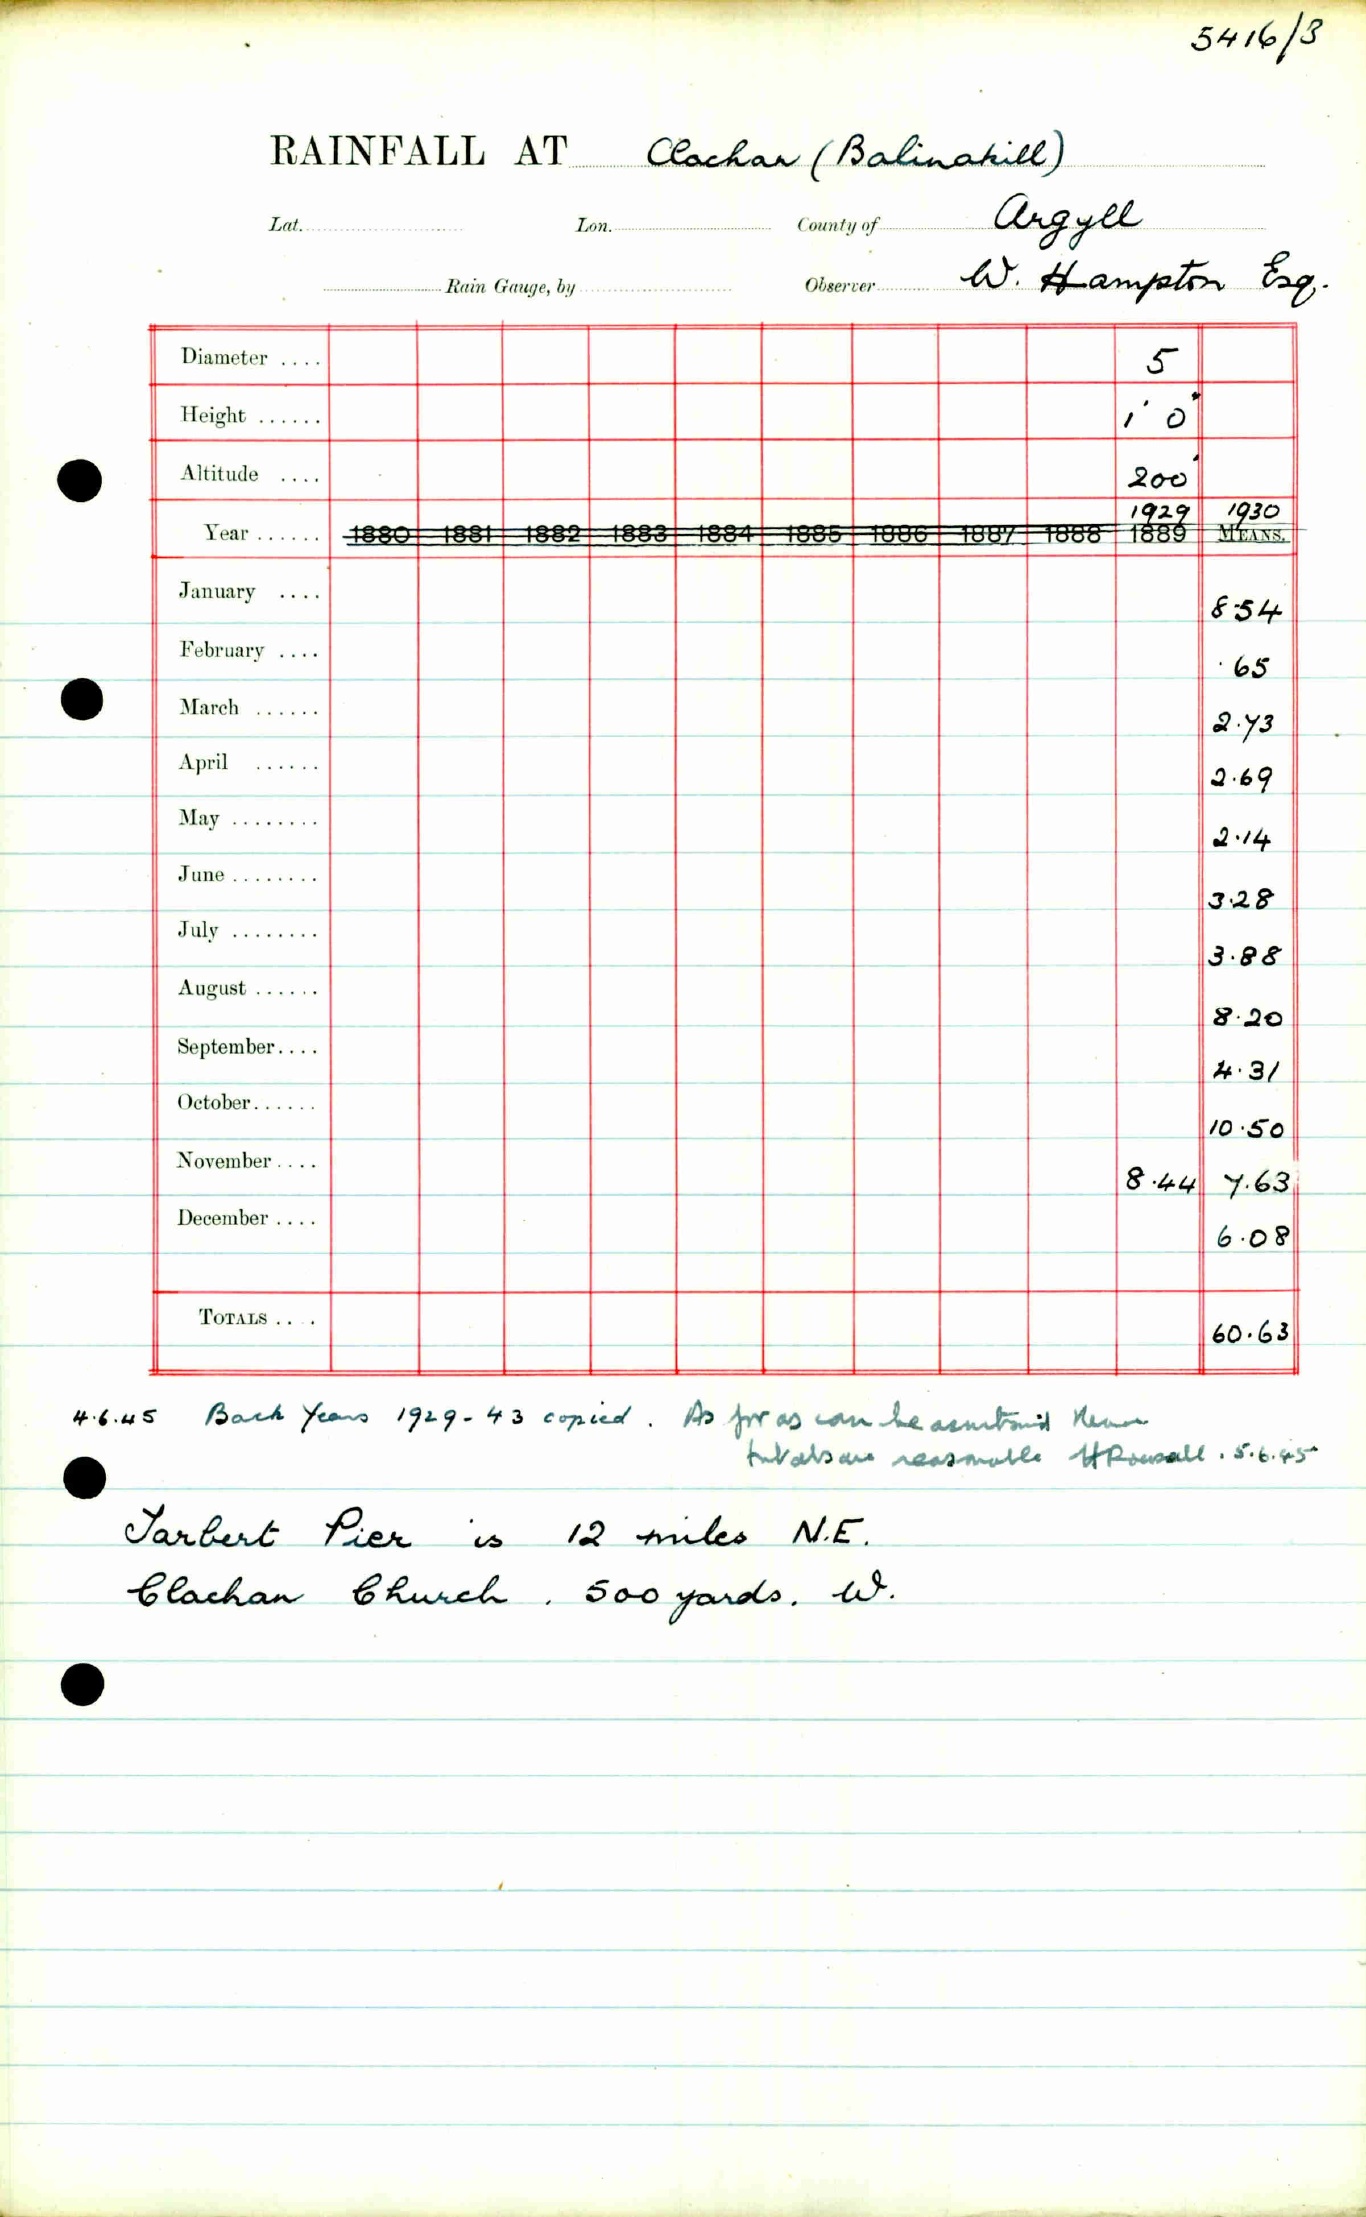 5416/3
RAINFALL AT Clachan (Balinakill)
Lat. Lon. County of Argyll
Rain Gauge, by Observer W. Hampton Esq.
Diameter .... 5
Height ...... 1' 0"
Altitude .... 200'
1929 1930
Year ...... 1880 1881 1882 1883 1884 1885 1886 1887 1888 1889 MEANS.
January .... 8.54
February .... .65
March ...... 2.73
April ...... 2.69
May ........ 2.14
June ........ 3.28
July ........ 3.88
August ...... 8.20
September.... 4.31
October...... 10.50
November .... 8.44 7.63
December .... 6.08
TOTALS .... 60.63
4.6.45 Back Years 1929-43 copied. As far as can be ascertained these
totals are reasonable . 5.6.45
Tarbert Pier is 12 miles N.E.
Clachan Church . 500 yards. W.